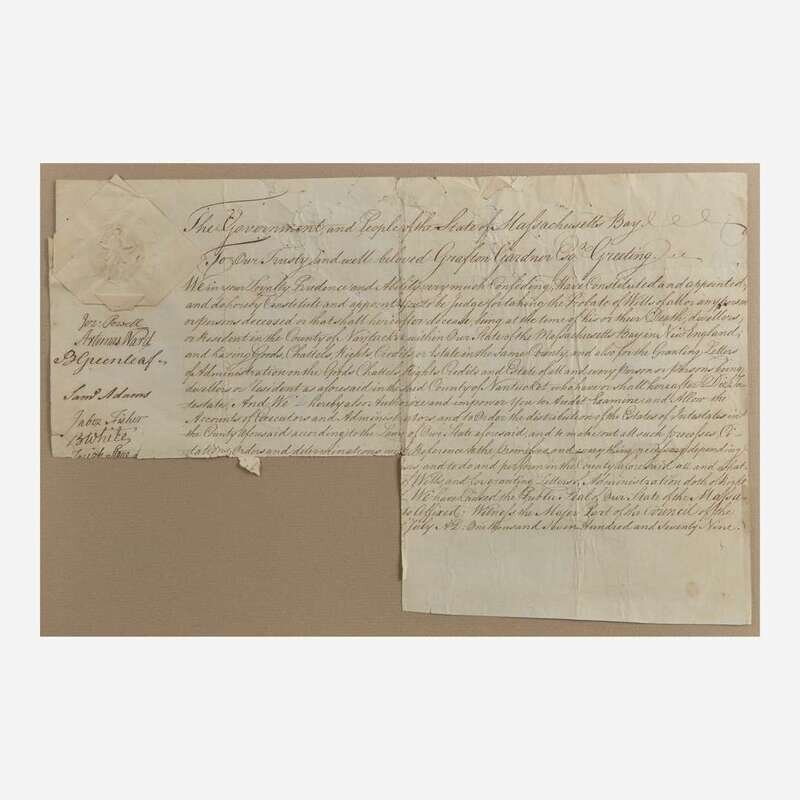 The Government and People of the State of Massachusetts Bay
To Our Trusty and well beloved Grafton Gardner Esqr. Greeting
We in your Loyalty Prudence and Ability very much Confiding, Have Constituted and appointed,
and do hereby Constitute and appoint You to be Judge for taking the Probate of Wills of all or any person
or persons deceased or that shall hereafter decease, being at the time of his or their Death, dwellers
or Resident in the County of Nantucket within Our State of the Massachusetts Bay in New England;
and having Gods, Chattels, Rights Credits or Estate in the Same County, and also for the Granting Letters
of Administration on the Gods Chattels, Rights Credits and Estate of all and every Person or persons being
dwellers or Resident as aforesaid in the said County of Nantucket who have or shall hereafter Die In-
testate; And We hereby also Authorize and impower You to Audit Examine and Allow the
Accounts of Executors and Administrators, and to Order the distribution of the Estates of Intestates in
the County aforesaid according to the Laws of Our State aforesaid, and to make out all such processes Ci-
tations Orders and determinations Reference to the Premises and every thing depending
and to do and perform in the County aforesaid all and what
of Wills and for granting Letters of Administration doth of Right
We have caused the Publick Seal of Our State of the Massa
to Affixed; Witness the Major Part of the Council of the
July AD: One thousand Seven Hundred and Seventy Nine.
Jer: Powell
Artemas Ward
B Greenleaf
Saml. Adams
Jabez Fisher
B White